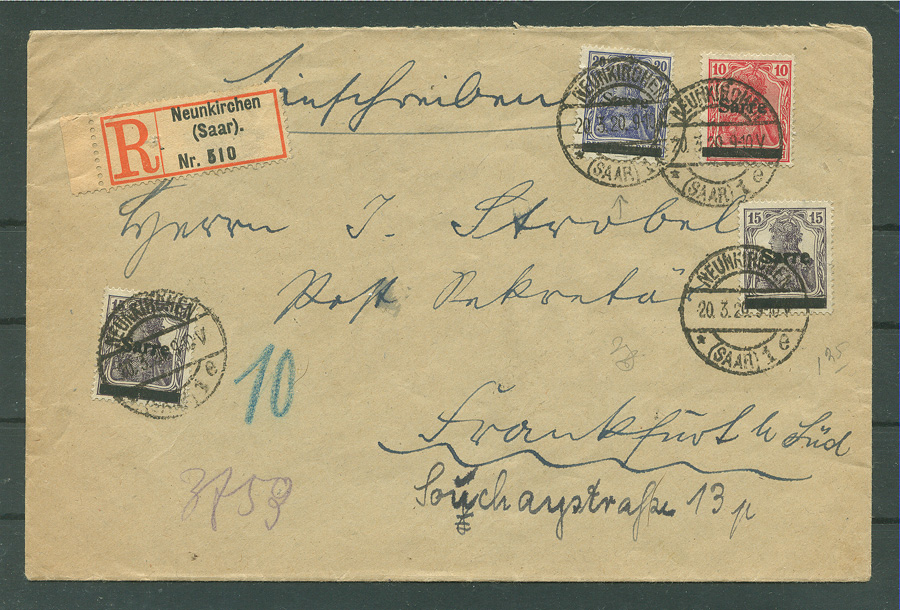 Einschreiben
R
Neunkirchen
(Saar).
Nr. 510
20 20
NEUNKIRCHEN
20.3.20.9-
* (SAAR) 1
10 10
Sarre
NEUNKIRCHEN
20.3.20.9-10V
* (SAAR) 1 e
Herrn J. Strobel
Post Sekretä
15 15
Sarre
NEUNKIRCHEN
20.3.20.9-10V
* (SAAR) 1 e
15
Sarre
NEUNKIRCHEN
V
1 e
10
Frankfurt Süd
Souchaystraße 13 p
3759